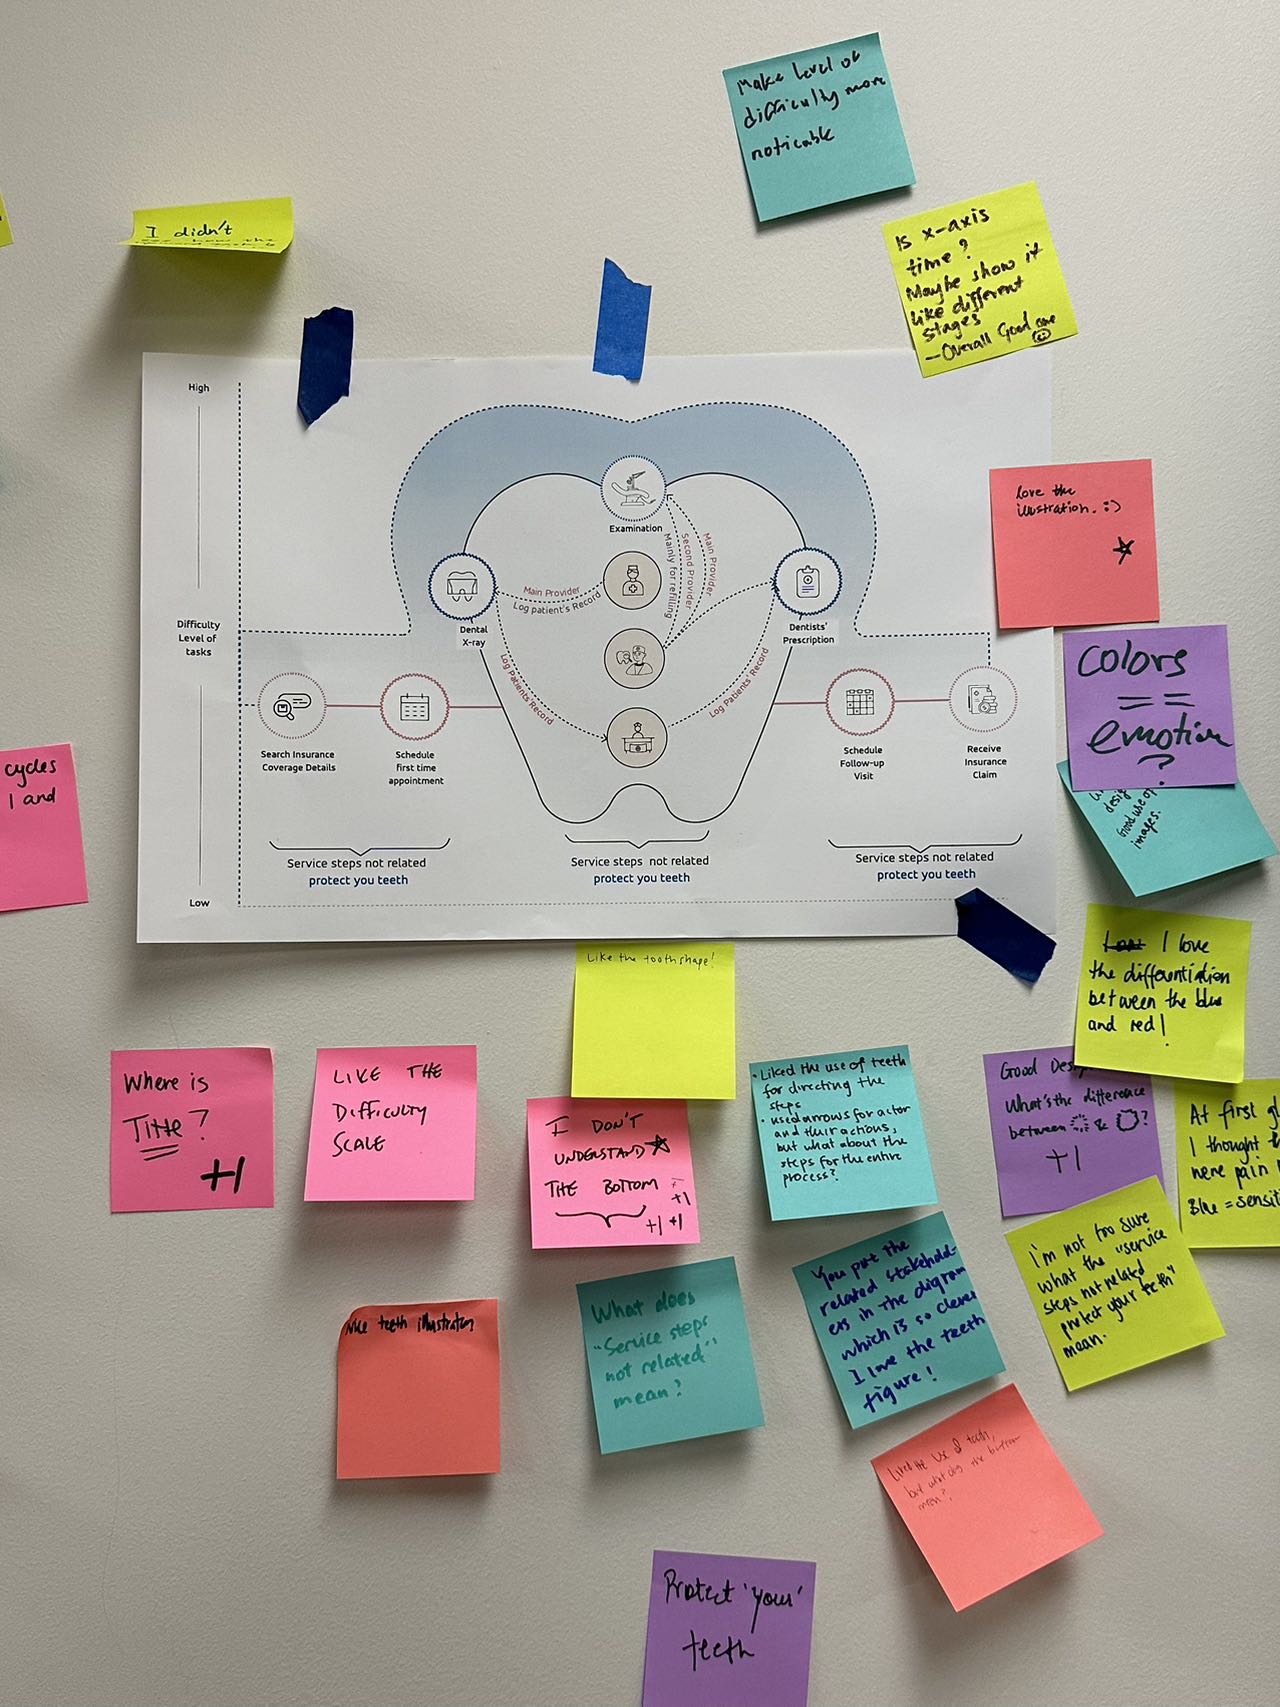 Make level of
difficulty more
noticable
I didn't
Is x-axis
time?
Maybe show it
like different
stages
- Overall Good one
High
Difficulty
Level of
tasks
Low
Examination
Main Provider
Second Provider
Mainly for refilling
Main Provider
Log patient's Record
Dental
X-ray
Dentists'
Prescription
Log Patients Record
Log Patients' Record
Search Insurance
Coverage Details
Schedule
first time
appointment
Schedule
Follow-up
Visit
Receive
Insurance
Claim
Service steps not related
protect you teeth
Service steps not related
protect you teeth
Service steps not related
protect you teeth
love the
illustration. :)
colors
==
emotion
?
Good use of
images.
cycles
1 and
I love
the differentiation
between the blue
and red!
Like the tooth shape!
Where is
Title?
+1
LIKE THE
DIFFICULTY
SCALE
I DON'T
UNDERSTAND
THE BOTTOM
+1
+1 +1
• Liked the use of teeth
for directing the
steps
• used arrows for actor
and their actions,
but what about the
steps for the entire
process?
Good
What's the difference
between & ?
+1
At first
I thought
were pain
Blue =
Nice teeth illustration
What does
"Service steps
not related"
mean?
You put the
related stakehold-
ers in the diagram
which is so clever
I love the teeth
figure!
I'm not too sure
what the "service
steps not related
protect your teeth"
mean.
Liked the use of teeth,
but what does the bottom
mean?
Protect 'your'
teeth